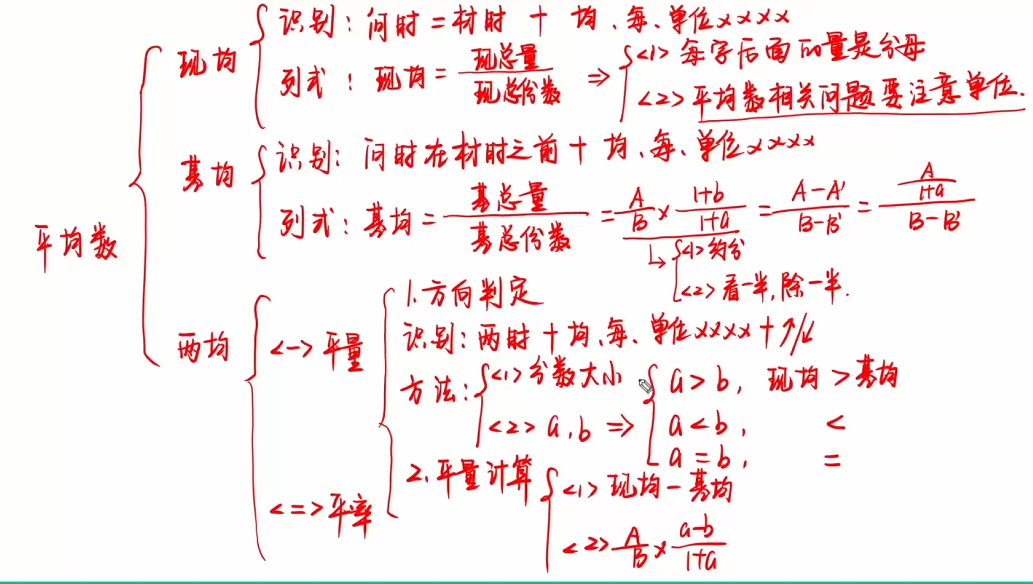 平均数
现均
识别：问时＝材时 + 均、每、单位××××
列式：现均＝现总量/现总份数 ⇒
<1> 每字后面的量是分母
<2> 平均数相关问题要注意单位.
基均
识别：问时在材时之前 + 均、每、单位××××
列式：基均＝基总量/基总份数＝A/B×(1+b)/(1+a)＝(A-A')/(B-B')＝(A/(1+a))/(B-B')
<1> 约分
<2> 看一半,除一半.
两均
<一> 平量
1.方向判定
识别：两时 + 均、每、单位×××× + ↑/↓
方法：
<1> 分数大小
<2> a,b ⇒
a > b, 现均 > 基均
a < b, <
a = b, =
2.平量计算
<1> 现均－基均
<2> A/B×(a-b)/(1+a)
<二> 平率